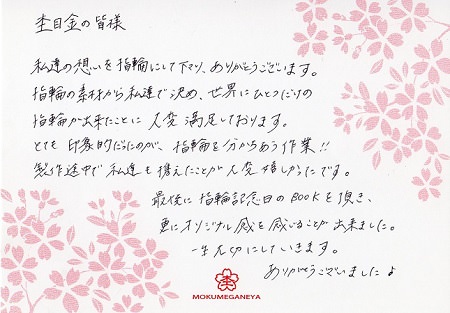 杢目金の皆様
私達の想いを指輪にして下さり、ありがとうございます。
指輪の素材から私達で決め、世界にひとつだけの
指輪が出来たことに大変満足しております。
とても印象的だったのが、指輪を分かちあう作業!!
製作途中で私達も携えたことが大変嬉しかったです。
最後に指輪記念日のBOOKを頂き、
更にオリジナル感を感じることが出来ました。
一生大切にしていきます。
ありがとうございました
MOKUMEGANEYA